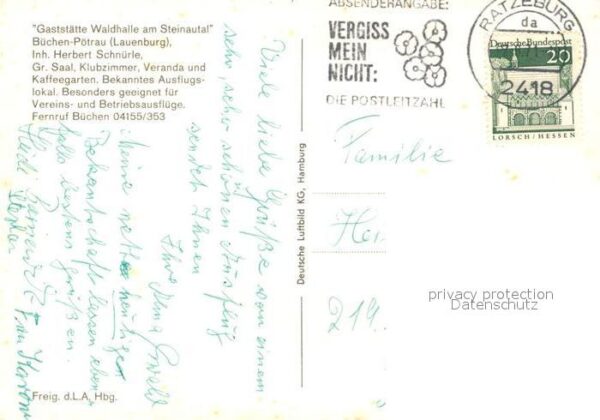 "Gaststätte Waldhalle am Steinautal"
Büchen-Pötrau (Lauenburg),
Inh. Herbert Schnürle,
Gr. Saal, Klubzimmer, Veranda und
Kaffeegarten. Bekanntes Ausflugs-
lokal. Besonders geeignet für
Vereins- und Betriebsausflüge.
Fernruf Büchen 04155/353
Viele liebe Grüße von einem
sehr, sehr schönen Ausflug
sendet Ihnen
Ihre Anna
Meine nette heutige
Bekanntschaft lassen eben-
falls bestens grüßen.
Heidi
Freig. d.L.A. Hbg.
Deutsche Luftbild KG, Hamburg
ABSENDERANGABE:
VERGISS
MEIN
NICHT:
DIE POSTLEITZAHL
RATZEBURG
da
2418
Deutsche Bundespost
20
LORSCH/HESSEN
Familie
Hei
219
privacy protection
Datenschutz